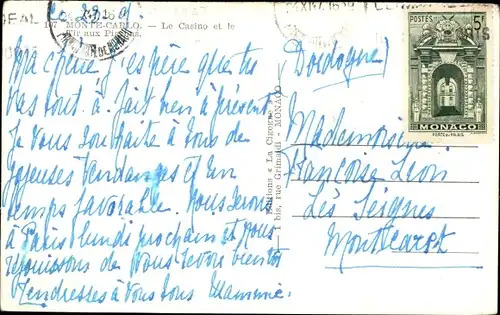 Ce 29. 9.
107 MONTE-CARLO. — Le Casino et le
Tir aux Pigeons
Ma chérie j'espère que tu
vas tout à fait bien à présent
Je vous souhaite à tous de
joyeuses vendanges et un
temps favorable. Nous serons
à Paris lundi prochain et nous
réjouissons de vous revoir bientôt
Tendresses à vous tous Mammie.
Editions « La Cigogne »
1 bis, rue Grimaldi - MONACO
(Dordogne)
Mademoiselle
Françoise Léon
Les Seignes
Montcaret
POSTES 5F
MONACO
PORTE DU PALAIS